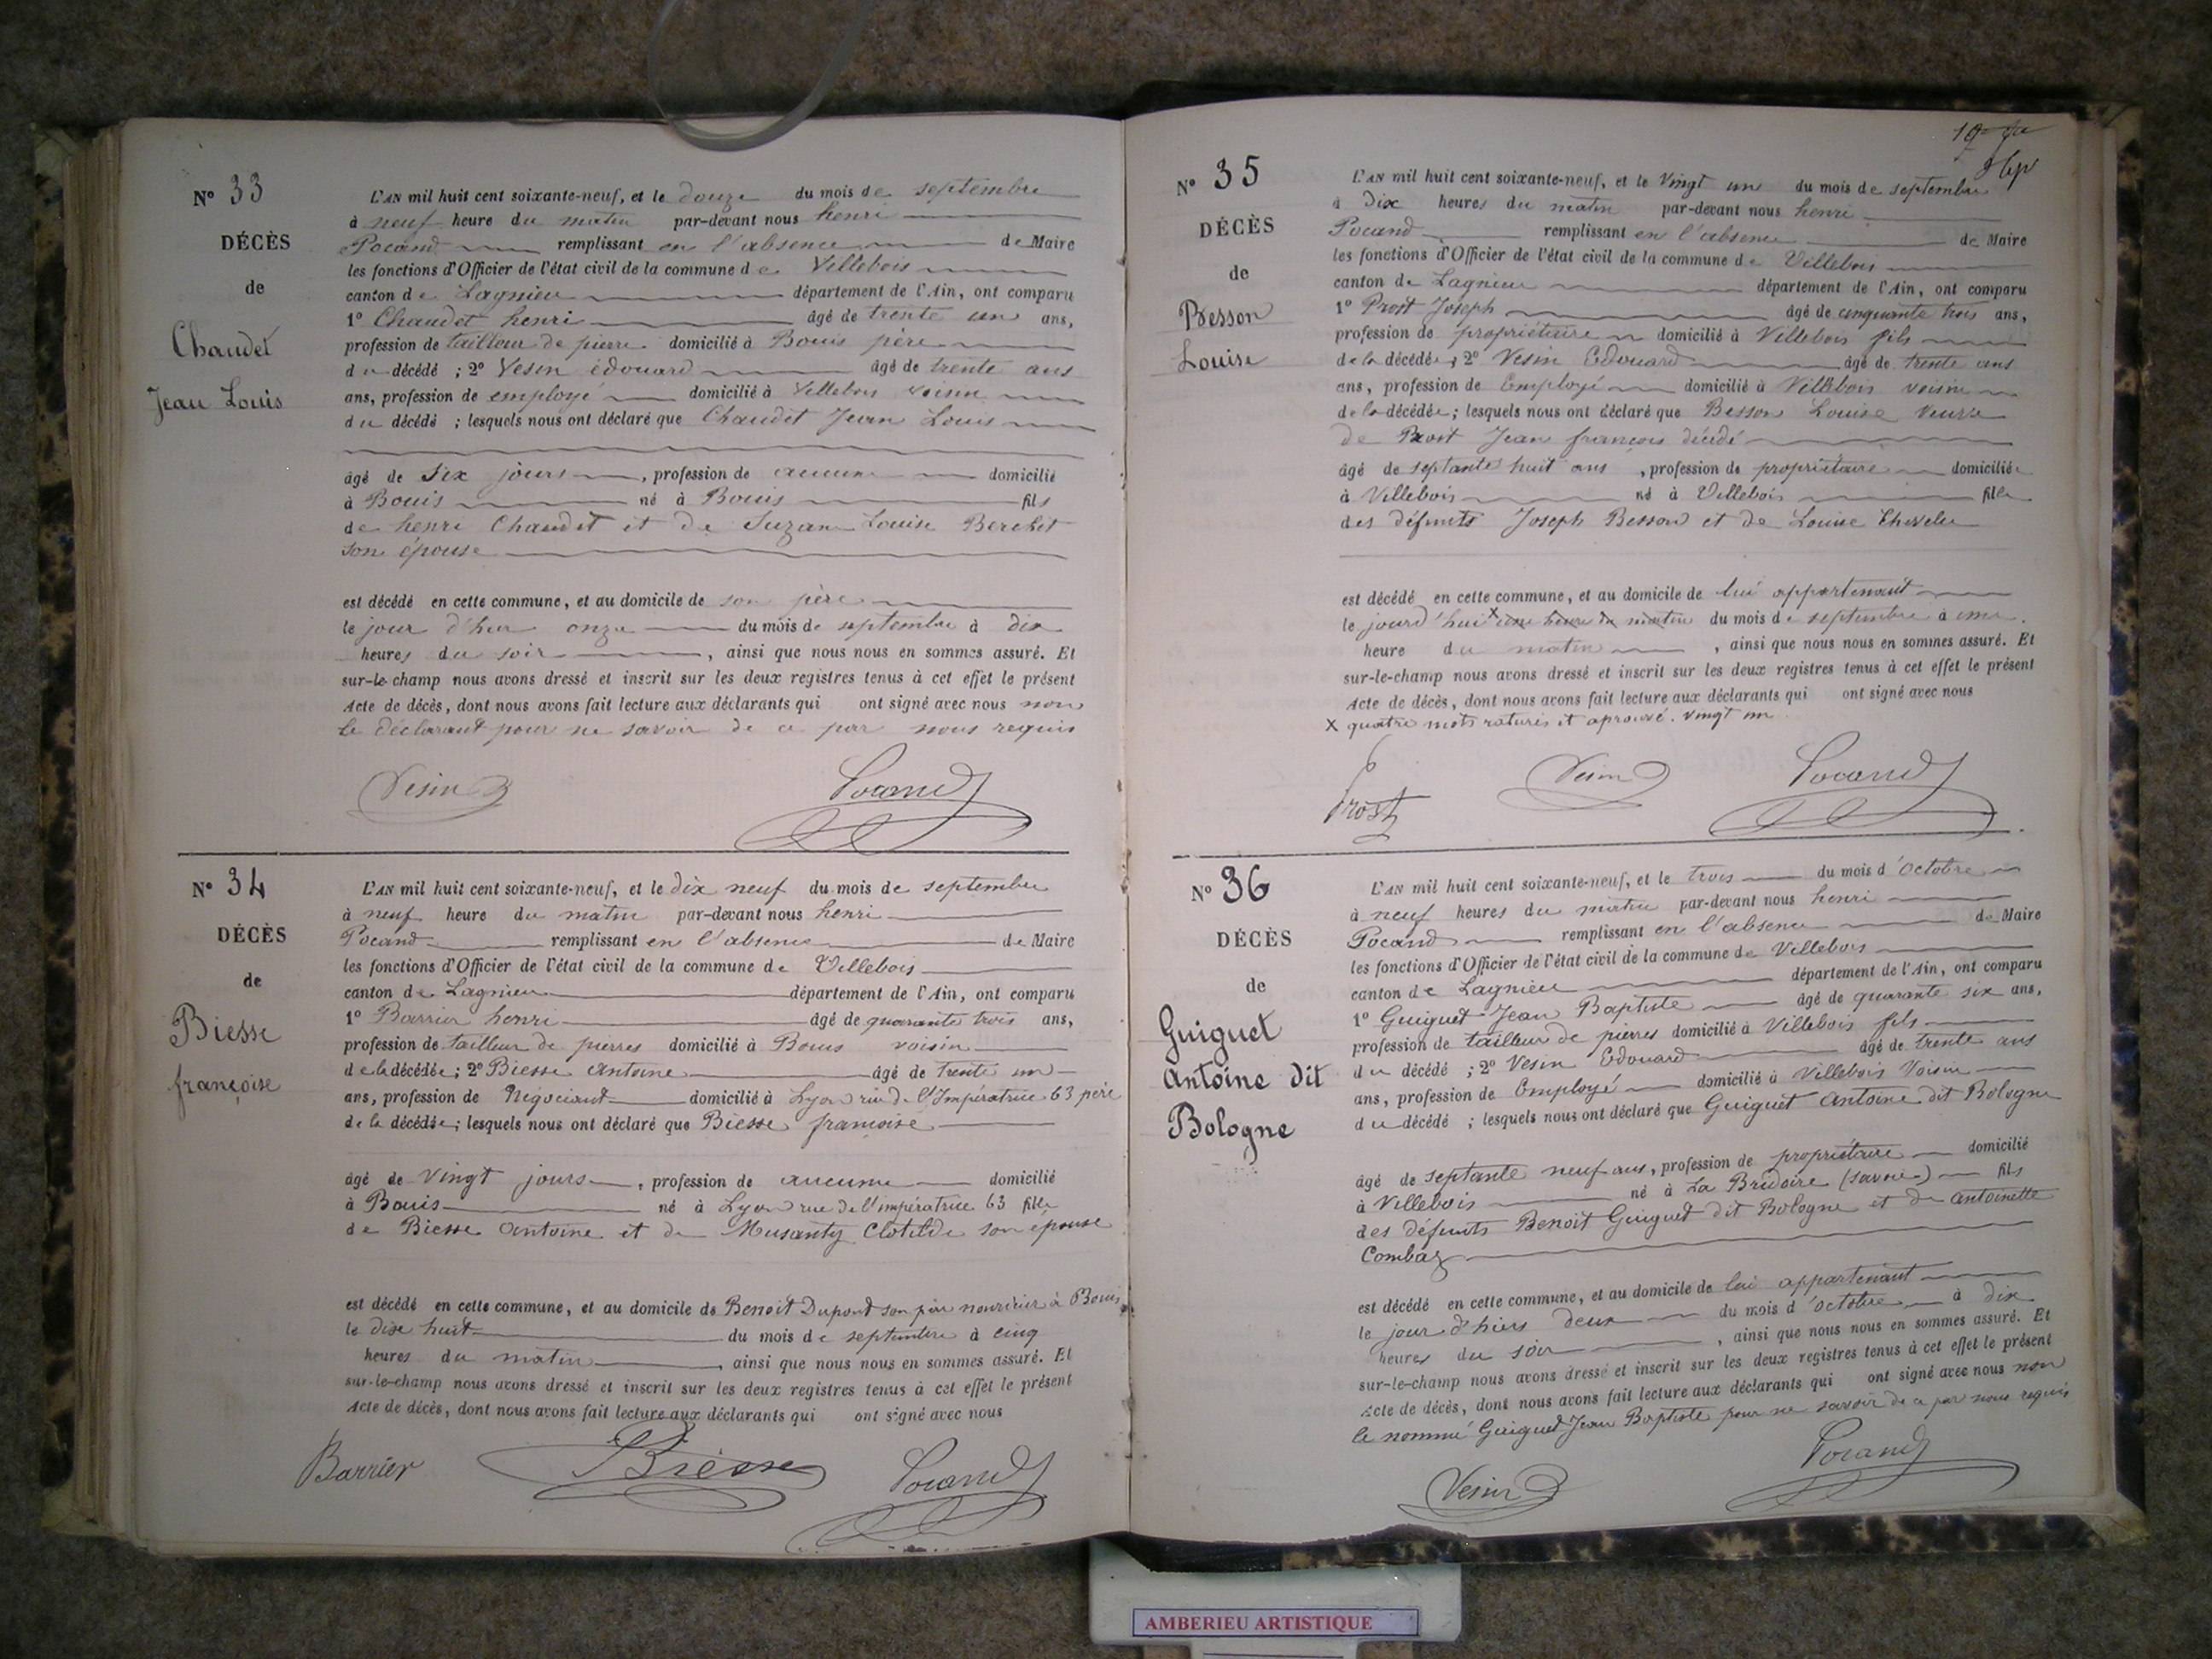 N° 33
DÉCÈS
de
Chaudet
Jean Louis
L'AN mil huit cent soixante-neuf, et le douze du mois de septembre
à neuf heure du matin par-devant nous henri
Pocand remplissant en l'absence de Maire
les fonctions d'Officier de l'état civil de la commune de Villebois
canton de Lagnieu département de l'Ain, ont comparu
1° Chaudet henri âgé de trente un ans,
profession de tailleur de pierre domicilié à Bouis père
du décédé ; 2° Vesin édouard âgé de trente ans
ans, profession de employé domicilié à Villebois voisin
du décédé ; lesquels nous ont déclaré que Chaudet Jean Louis
âgé de Six jours, profession de aucune domicilié
à Bouis né à Bouis fils
de henri Chaudet et de Suzane Louise Berchet
son épouse
est décédé en cette commune, et au domicile de son père
le jour d'hier onze du mois de septembre à dix
heures du soir, ainsi que nous nous en sommes assuré. Et
sur-le-champ nous avons dressé et inscrit sur les deux registres tenus à cet effet le présent
Acte de décès, dont nous avons fait lecture aux déclarants qui ont signé avec nous non
le déclarant pour ne savoir de ce par nous requis
Vesin Pocand
N° 34
DÉCÈS
de
Biesse
françoise
L'AN mil huit cent soixante-neuf, et le dix neuf du mois de septembre
à neuf heure du matin par-devant nous henri
Pocand remplissant en l'absence de Maire
les fonctions d'Officier de l'état civil de la commune de Villebois
canton de Lagnieu département de l'Ain, ont comparu
1° Barrier henri âgé de quarante trois ans,
profession de tailleur de pierres domicilié à Bouis voisin
de la décédée ; 2° Biesse Antoine âgé de trente un
ans, profession de Négociant domicilié à Lyon rue de l'Impératrice 63 père
de la décédée ; lesquels nous ont déclaré que Biesse françoise
âgé de vingt jours, profession de aucune domicilié
à Bouis né à Lyon rue de l'impératrice 63 fille
de Biesse Antoine et de Musanty Clotilde son épouse
est décédé en cette commune, et au domicile de Benoit Dupont son père nourricier à Bouis
le dix huit du mois de septembre à cinq
heures du matin, ainsi que nous nous en sommes assuré. Et
sur-le-champ nous avons dressé et inscrit sur les deux registres tenus à cet effet le présent
Acte de décès, dont nous avons fait lecture aux déclarants qui ont signé avec nous
Barrier Biesse Pocand
19
N° 35
DÉCÈS
de
Besson
Louise
L'AN mil huit cent soixante-neuf, et le Vingt un du mois de septembre
à Dix heures du matin par-devant nous henri
Pocand remplissant en l'absence de Maire
les fonctions d'Officier de l'état civil de la commune de Villebois
canton de Lagnieu département de l'Ain, ont comparu
1° Prost Joseph âgé de cinquante trois ans,
profession de propriétaire domicilié à Villebois fils
de la décédée ; 2° Vesin Edouard âgé de trente ans
ans, profession de Employé domicilié à Villebois voisin
de la décédée ; lesquels nous ont déclaré que Besson Louise veuve
de Prost Jean françois décédé
âgé de septante huit ans, profession de propriétaire domiciliée
à Villebois né à Villebois fille
des défunts Joseph Besson et de Louise Chevelu
est décédé en cette commune, et au domicile de lui appartenant
le jourd'hui x une heure du matin du mois de septembre à une
heure du matin, ainsi que nous nous en sommes assuré. Et
sur-le-champ nous avons dressé et inscrit sur les deux registres tenus à cet effet le présent
Acte de décès, dont nous avons fait lecture aux déclarants qui ont signé avec nous
x quatre mots raturés et aprouvé. vingt un
Prost Vesin Pocand
N° 36
DÉCÈS
de
Guiguet
Antoine dit
Bologne
L'AN mil huit cent soixante-neuf, et le trois du mois d'Octobre
à neuf heures du matin par-devant nous henri
Pocand remplissant en l'absence de Maire
les fonctions d'Officier de l'état civil de la commune de Villebois
canton de Lagnieu département de l'Ain, ont comparu
1° Guiguet Jean Baptiste âgé de quarante six ans,
profession de tailleur de pierres domicilié à Villebois fils
du décédé ; 2° Vesin Edouard âgé de trente ans
ans, profession de Employé domicilié à Villebois Voisin
du décédé ; lesquels nous ont déclaré que Guiguet Antoine dit Bologne
âgé de septante neuf ans, profession de propriétaire domicilié
à Villebois né à La Bridoire (Savoie) fils
des défunts Benoit Guiguet dit Bologne et de Antoinette
Combaz
est décédé en cette commune, et au domicile de lui appartenant
le jour d'hiers deux du mois d'octobre à dix
heures du soir, ainsi que nous nous en sommes assuré. Et
sur-le-champ nous avons dressé et inscrit sur les deux registres tenus à cet effet le présent
Acte de décès, dont nous avons fait lecture aux déclarants qui ont signé avec nous non
le nommé Guiguet Jean Baptiste pour ne savoir de ce par nous requis
Vesin Pocand
AMBERIEU ARTISTIQUE